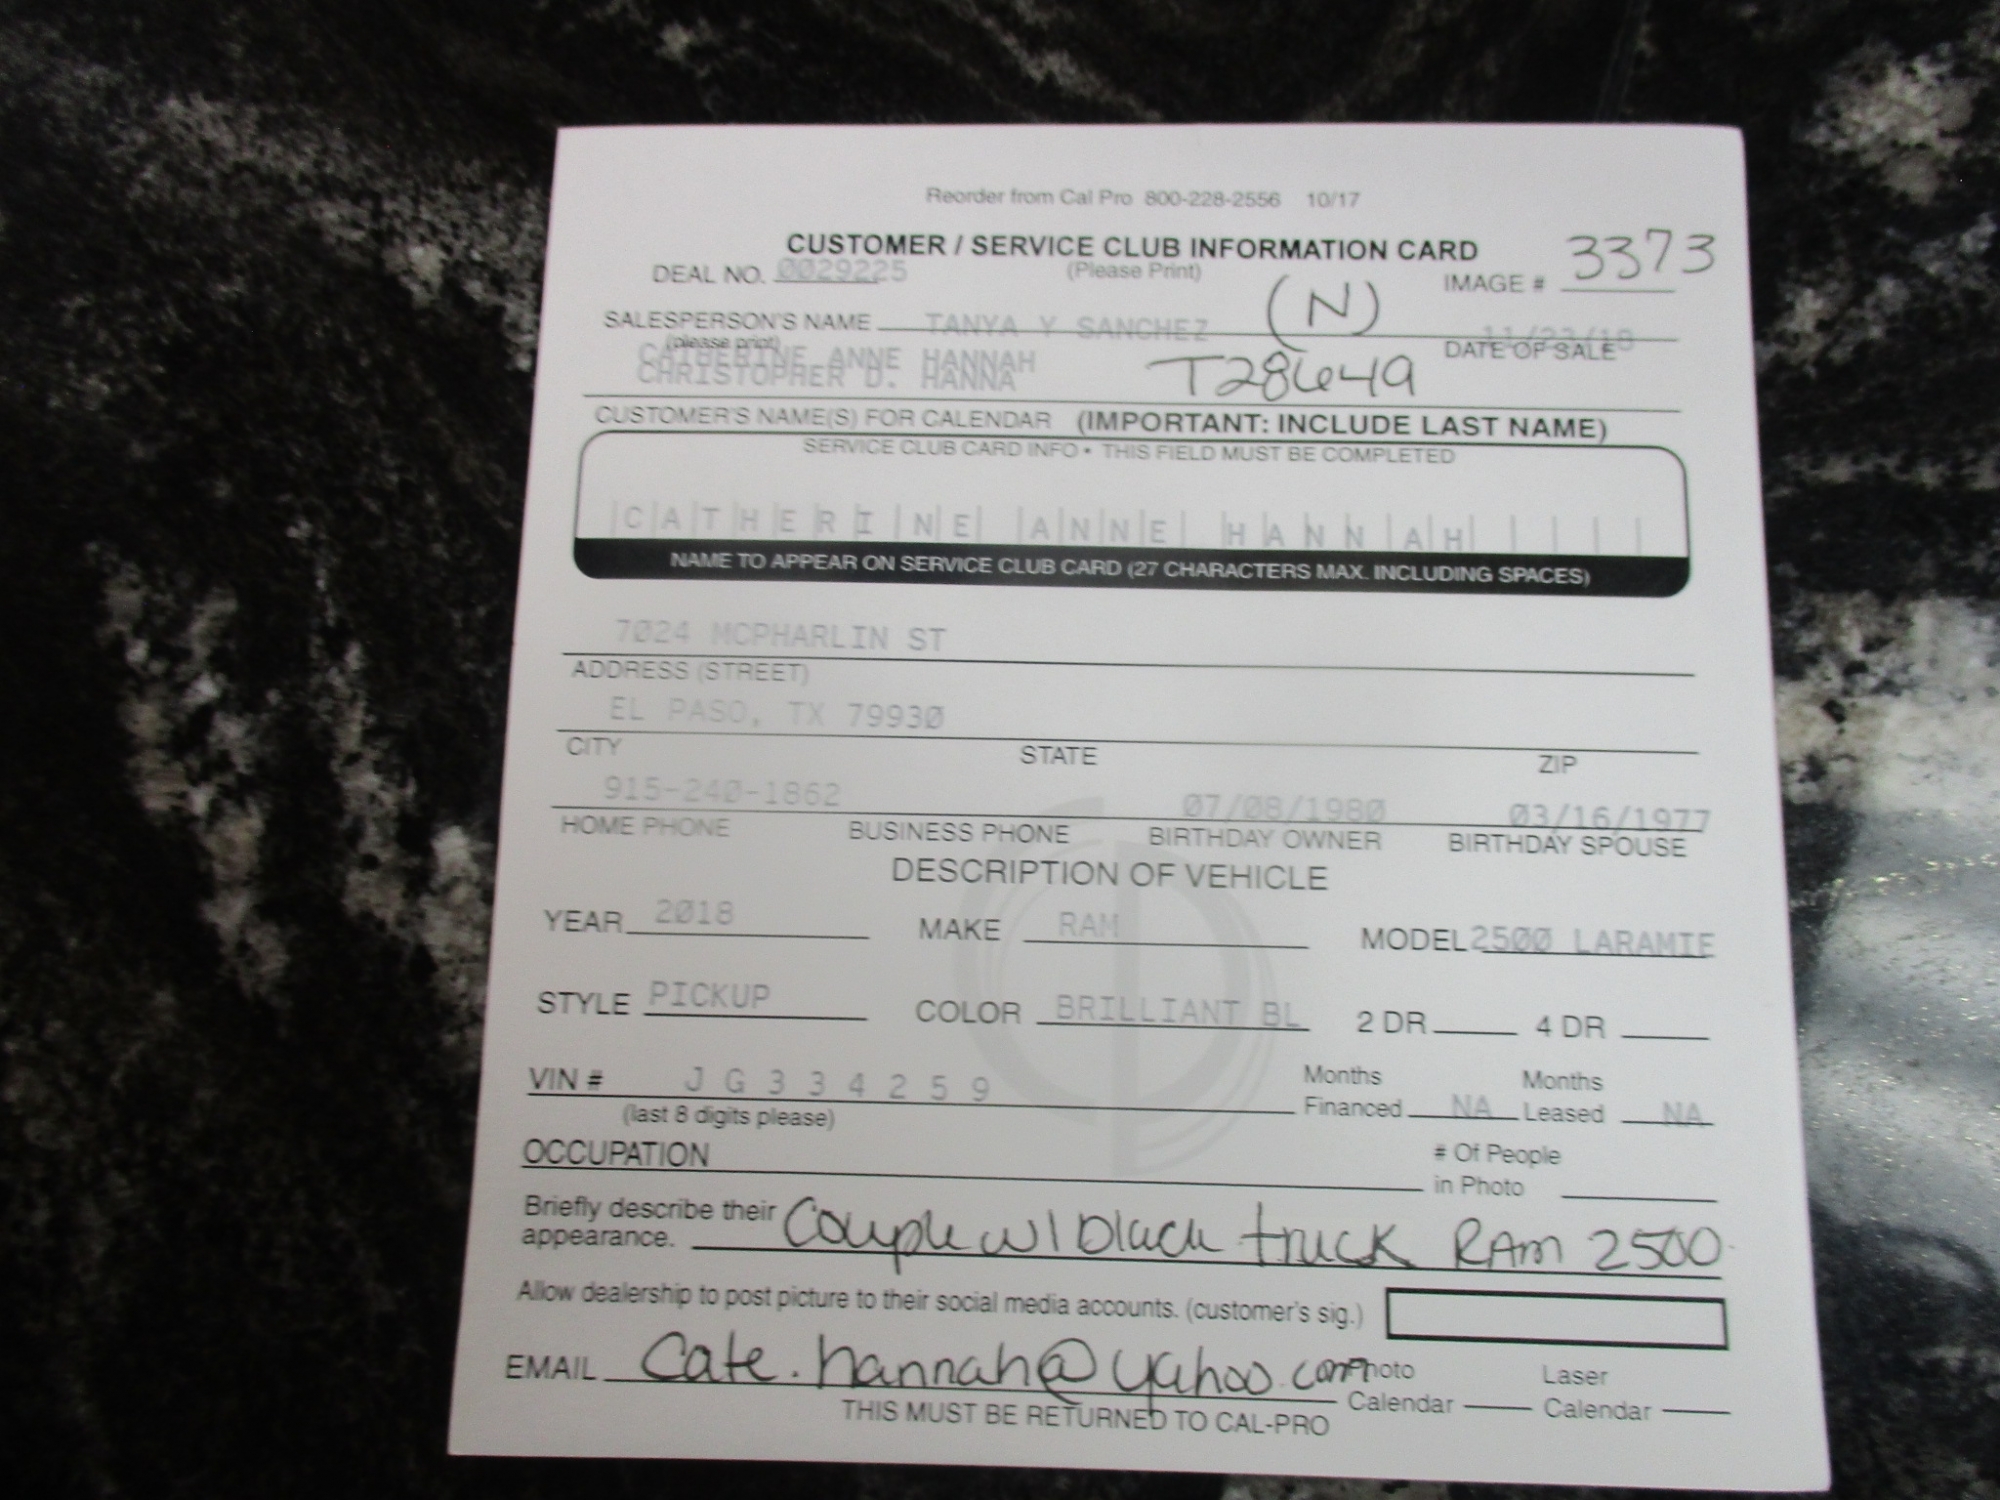 Reorder from Cal Pro 800-228-2556 10/17
CUSTOMER / SERVICE CLUB INFORMATION CARD
DEAL NO. 0029225 (Please Print) IMAGE # 3373
SALESPERSON'S NAME TANYA Y SANCHEZ (N)
(please print) DATE OF SALE
CATHERINE ANNE HANNAH
CHRISTOPHER D. HANNA T28649
CUSTOMER'S NAME(S) FOR CALENDAR (IMPORTANT: INCLUDE LAST NAME)
SERVICE CLUB CARD INFO • THIS FIELD MUST BE COMPLETED
CATHERINE ANNE HANNAH
NAME TO APPEAR ON SERVICE CLUB CARD (27 CHARACTERS MAX. INCLUDING SPACES)
7024 MCPHARLIN ST
ADDRESS (STREET)
EL PASO, TX 79930
CITY STATE ZIP
915-240-1862 07/08/1980 03/16/1977
HOME PHONE BUSINESS PHONE BIRTHDAY OWNER BIRTHDAY SPOUSE
DESCRIPTION OF VEHICLE
YEAR 2018 MAKE RAM MODEL 2500 LARAMIE
STYLE PICKUP COLOR BRILLIANT BL 2 DR 4 DR
VIN # J G 3 3 4 2 5 9 Months Financed NA Months Leased NA
(last 8 digits please)
OCCUPATION # Of People in Photo
Briefly describe their appearance. Couple w/ black truck RAM 2500
Allow dealership to post picture to their social media accounts. (customer's sig.)
EMAIL Cate.hannah@yahoo.com Photo Calendar Laser Calendar
THIS MUST BE RETURNED TO CAL-PRO